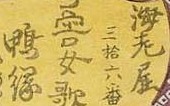 海老屋
三拾六番
盲女歌
鴨緑